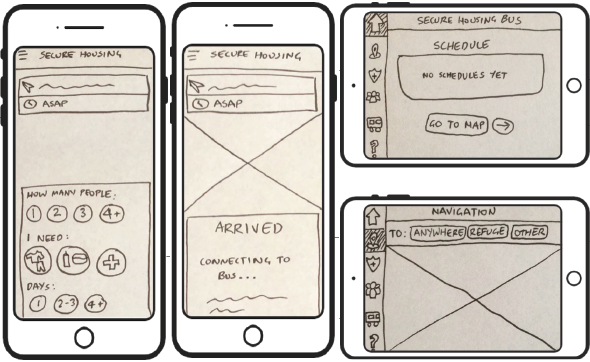 SECURE HOUSING
ASAP
HOW MANY PEOPLE:
1 2 3 4+
I NEED:
DAYS:
1 2-3 4+
SECURE HOUSING
ASAP
ARRIVED
CONNECTING TO
BUS...
SECURE HOUSING BUS
SCHEDULE
NO SCHEDULES YET
GO TO MAP
?
NAVIGATION
TO: ANYWHERE REFUGE OTHER
?